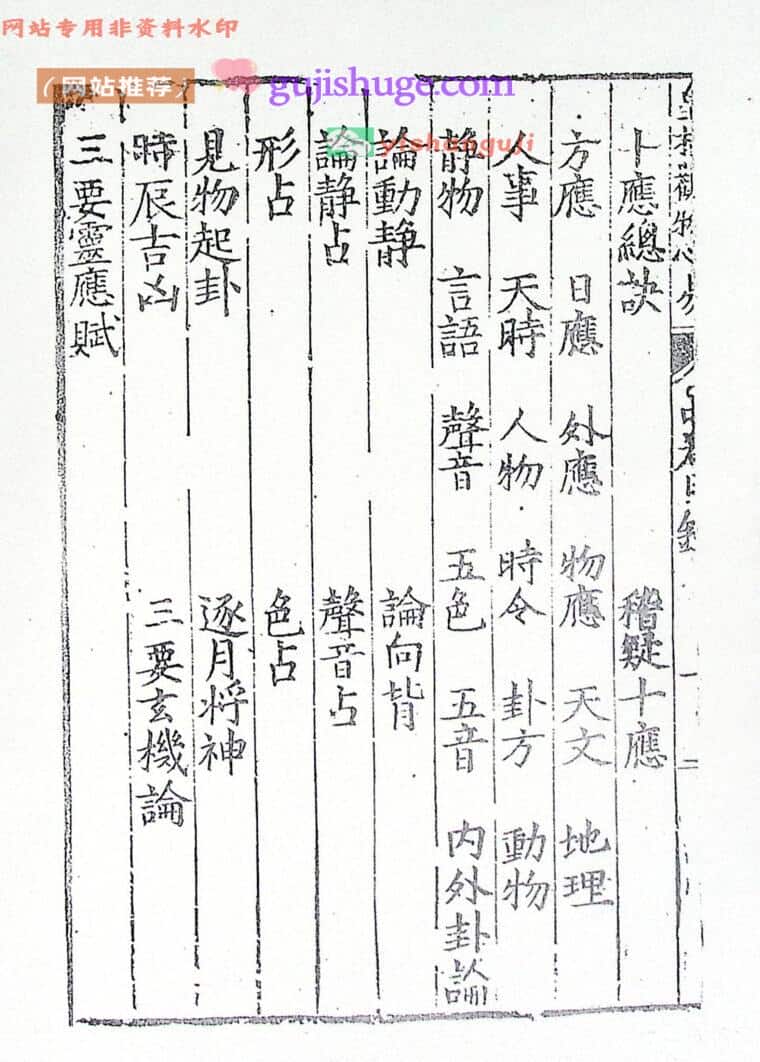 网站专用非资料水印
(网站推荐)
gujishuge.com
yishanguji
卜應總訣 稽疑十應
方應 日應 外應 物應 天文 地理
人事 天時 人物 時令 卦方 動物
静物 言語 聲音 五色 五音 内外卦論
論動静 論向背
論静占 聲音占
形占 色占
見物起卦 逐月将神
時辰吉凶 三要玄機論
三要靈應賦